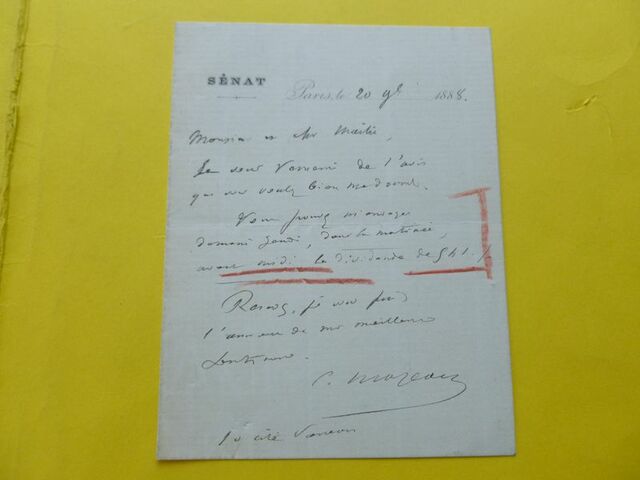 SÉNAT
Paris, le 20 9bre 1888.
Monsieur et cher Maître,
Je vous remercie de l'avis
que vous voulez bien me donner.
Vous pouvez m'envoyer
demain jeudi, dans la matinée,
avant midi le dividende de
Recevez, je vous prie
l'assurance de mes meilleurs
sentiments.
C.
10 cité Vaneau